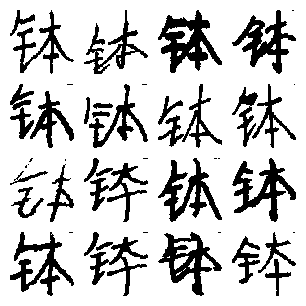 钵钵钵钵
钵钵钵钵
钵钵钵钵
钵钵钵钵